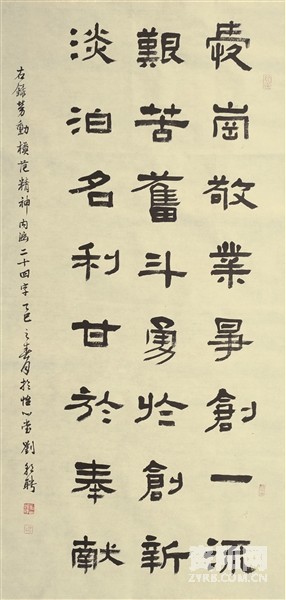 愛崗敬業爭創一流
艱苦奮斗勇於創新
淡泊名利甘於奉献
右錄劳動模范精神内涵二十四字乙巳之春月於心堂劉聘
WWW.ZYRB.COM.CN